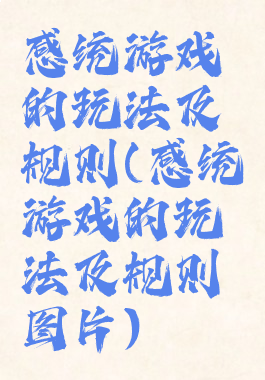 感统游戏
的玩法及
规则(感统
游戏的玩
法及规则
图片)